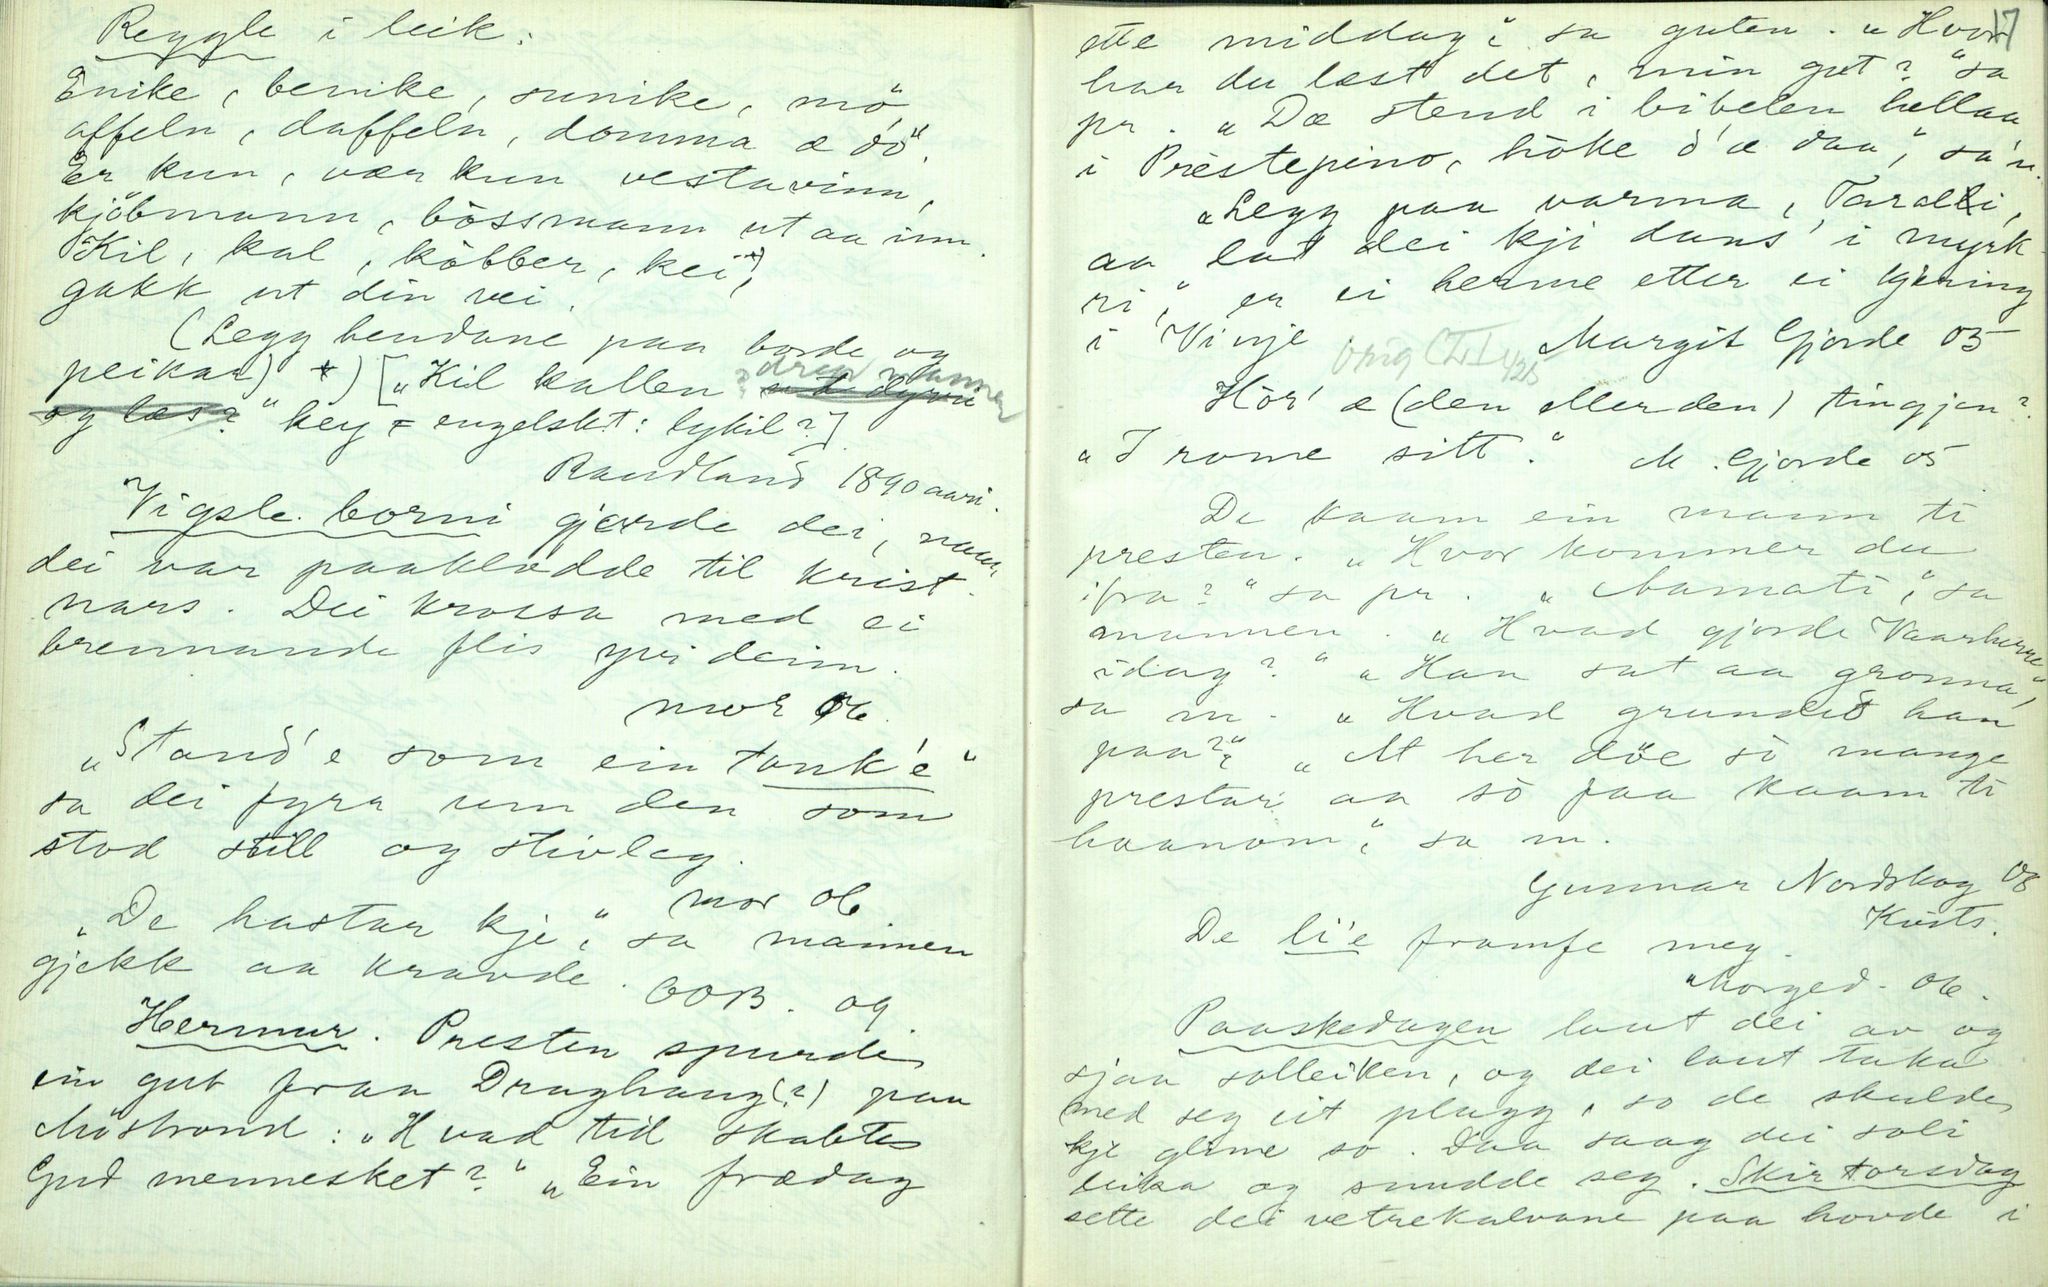 Reggle i leik:
Enike, benike, sunike, mö,
affeln, daffeln, domma æ dö".
Er kun, vær kun vestavinn,
kjöbmann, bössmann ut aa inn.
Kil, kal, köbber, kei *),
gakk ut din vei.
(Legg hendane paa borde og
peikar) *) ["Kil kallen
og læs?" key = engelskt: lykil?]
Raudland 1890aari.
Vigsle borni gjorde dei, naar
dei var paaklædde til krist-
nars. Dei krossa med ei
brennande flis yvi deim.
mor 06.
"Stand'e som ein tank'e"
sa dei fyrr um den som
stod still og stivleg.
mor 06.
"De hastar kje," sa mannen
gjekk aa kravde. OOB. 09.
Hermur. Presten spurde
ein gut fraa Draghaug(?) paa
Möstrond: "Hvad tid skabte
Gud mennesket?" "Ein frædag
17
ette middag," sa guten. "Hvor
har du læst det, min gut?" sa
pr. "Dæ stend i bibelen hellaa
i Prestepino, höke d'æ daa," sa'n.
"Legg paa varma, Taralli,
aa lat dei kji dans' i myrk-
ri," er ei herme etter ei kjæring
i Vinje Margit Gjorde 05
Hör' æ (den eller den) tingjen?
"I rome sitt." M. Gjorde 05
De kaam ein mann ti
presten. "Hvor kommer du
ifra?" sa pr. "Aamati," sa
mannen. "Hvad gjorde Vaarherre
idag?" "Han sat aa gronna,"
sa m. "Hvad grundet han
paa?" "At her döe so mange
prestar aa so faa kaam ti
haanom," sa m.
Gunnar Nordskog 08
Kvits.
De li'e framfe meg.
Morged. 06.
Paaskedagen laut dei av og
sjaa solleiken, og dei laut taka
med seg eit plagg, so de skulde
kje glime so. Daa saag dei soli
leika og snudde seg. Skirtorsdag
sette dei vetrekalvane paa hovde i